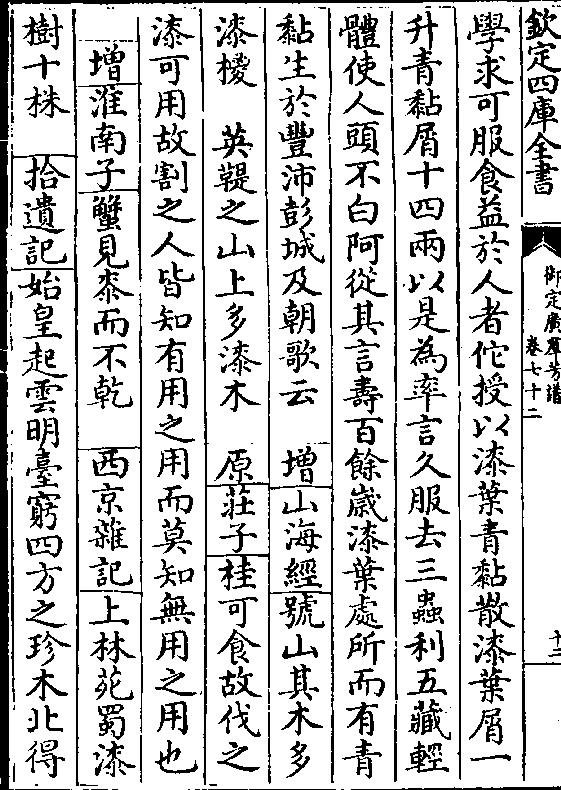 欽定四庫全書
御定廣羣芳譜
卷七十二
十二
學求可服食益於人者佗授以漆葉青黏散漆葉屑一
升青黏屑十四兩以是為率言久服去三蟲利五藏輕
體使人頭不白阿從其言壽百餘歲漆葉處所而有青
黏生於豐沛彭城及朝歌云 增山海經號山其木多
漆㯶 英鞮之山上多漆木 原莊子桂可食故伐之
漆可用故割之人皆知有用之用而莫知無用之用也
增淮南子蟹見桼而不乾 西京雜記上林苑蜀漆
樹十株 拾遺記始皇起雲明臺窮四方之珍木北得